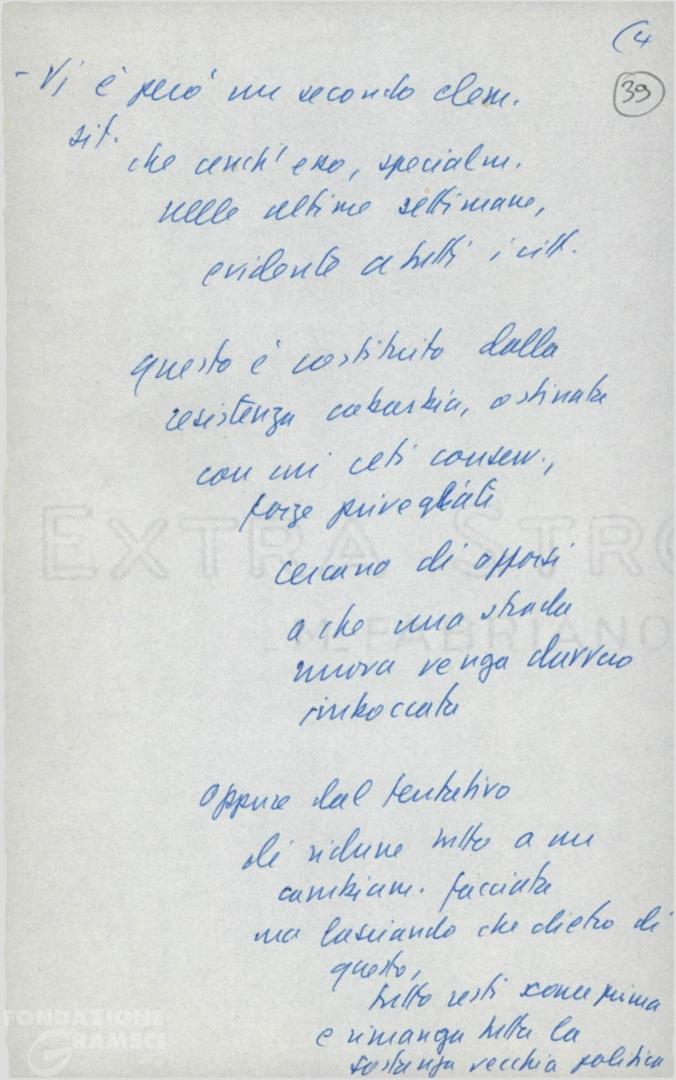 (4
39
- Vi è però un secondo elem.
sit.
che anch'esso, specialm.
nelle ultime settimane,
evidente a tutti i citt.
questo è costituito dalla
resistenza caparbia, ostinata
con cui ceti conserv.,
forze privegliati
cercano di opporsi
a che una strada
nuova venga davvero
imboccata
oppure dal tentativo
di ridurre tutto a un
cambiam. facciata
ma lasciando che dietro di
questo,
tutto resti come prima
e rimanga tutta la
sostanza vecchia politica
EXTRA STRO
FABRIANO
FONDAZIONE
GRAMSCI